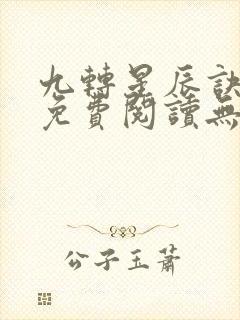 九轉星辰訣
免費閱讀無
公子玉蕭